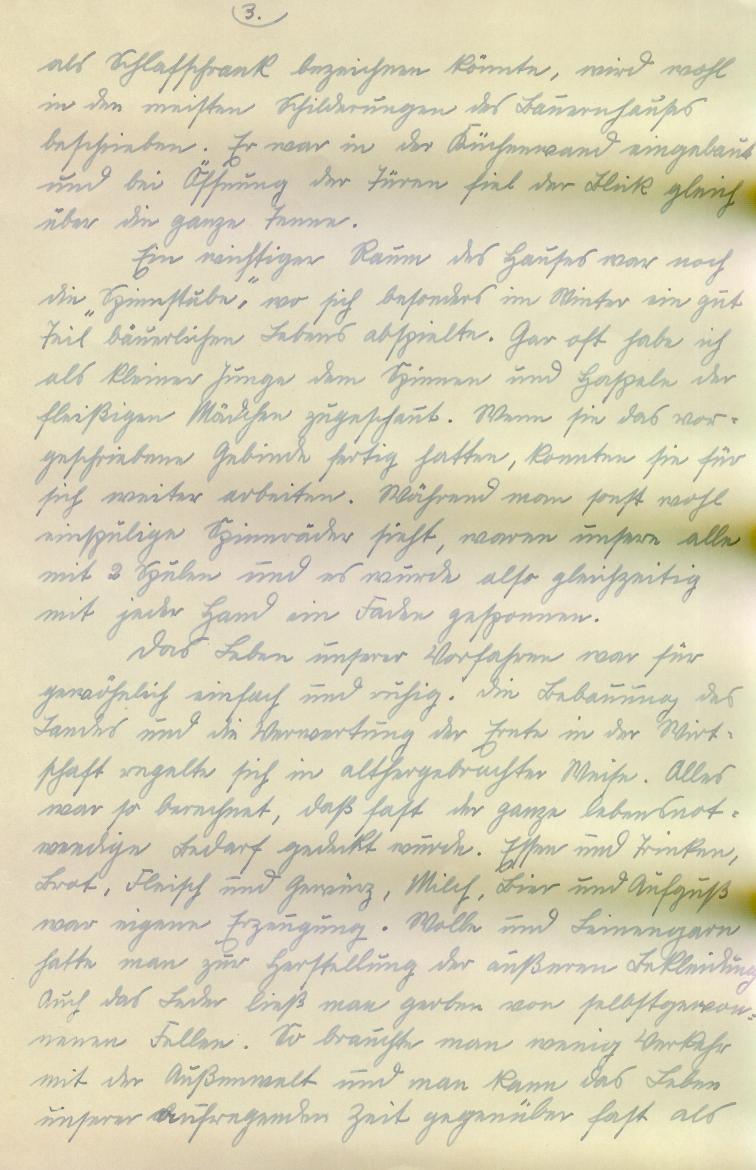 3.
als Schlafschrank bezeichnen könnte, wird wohl
in den meisten Schilderungen des Bauernhauses
beschrieben. Er war in der Küchenwand eingebaut
und bei Öffnung der Türen fiel der Blick gleich
über die ganze Tenne.
Ein wichtiger Raum des Hauses war noch
die „Spinnstube", wo sich besonders im Winter ein gut
Teil bäuerlichen Lebens abspielte. Gar oft habe ich
als kleiner Junge dem Spinnen und Haspeln der
fleißigen Mädchen zugeschaut. Wenn sie das vor-
geschriebene Gebinde fertig hatten, konnten sie für
sich weiter arbeiten. Während man sonst wohl
einspulige Spinnräder sieht, waren unsere alle
mit 2 Spulen und es wurde also gleichzeitig
mit jeder Hand ein Faden gesponnen.
Das Leben unserer Vorfahren war für
gewöhnlich einfach und ruhig. Die Bebauung des
Landes und die Verwertung der Ernte in der Wirt-
schaft regelte sich in althergebrachter Weise. Alles
war so berechnet, daß fast der ganze lebensnot-
wendige Bedarf gedeckt wurde. Essen und Trinken,
Brot, Fleisch und Gewürz, Milch, Bier und Aufguß
war eigene Erzeugung. Wolle und Leinengarn
hatte man zur Herstellung der äußeren Bekleidung
Auch das Leder ließ man gerben von selbstgewon-
nenen Fellen. So brauchte man wenig Verkehr
mit der Außenwelt und man kann das Leben
unserer aufregenden Zeit gegenüber fast als